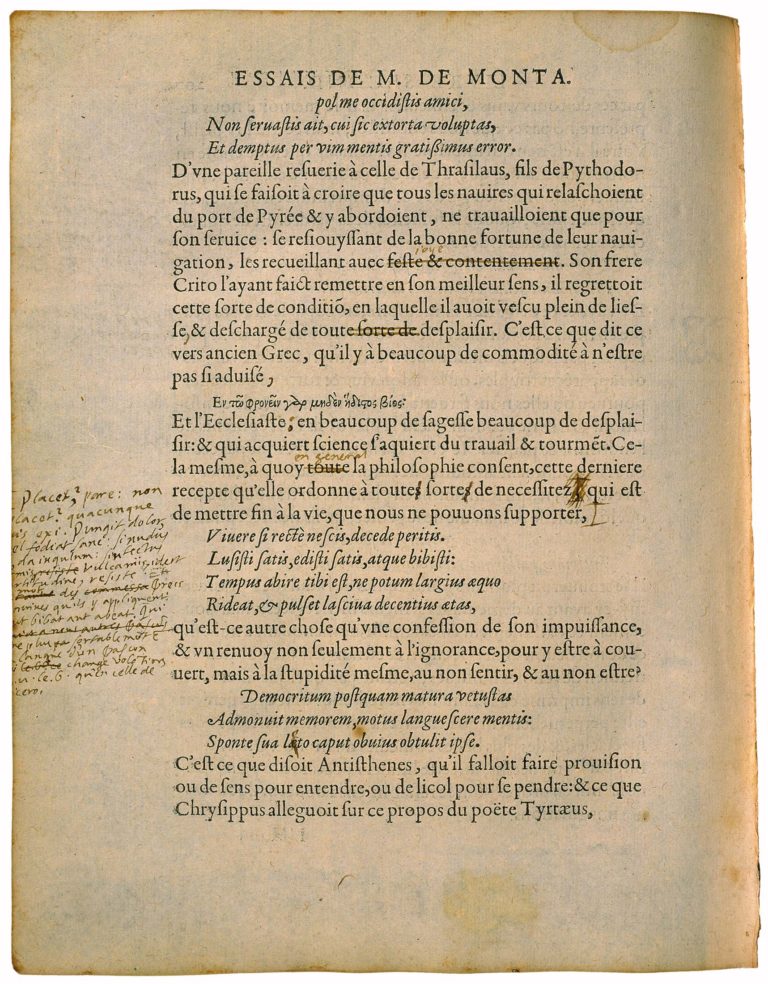 ESSAIS DE M. DE MONTA.
pol me occidistis amici,
Non seruastis ait, cui sic extorta voluptas,
Et demptus per vim mentis gratißimus error.
D'vne pareille resuerie à celle de Thrasilaus, fils de Pythodo-
rus, qui se faisoit à croire que tous les nauires qui relaschoient
du port de Pyrée & y abordoient, ne trauailloient que pour
son seruice : se resiouyssant de la bonne fortune de leur naui-
ioye
gation, les recueillant auec feste & contentement. Son frere
Crito l'ayant faict remettre en son meilleur sens, il regrettoit
cette sorte de conditiõ, en laquelle il auoit vescu plein de lies-
se, & deschargé de toute sorte de desplaisir. C'est ce que dit ce
vers ancien Grec, qu'il y à beaucoup de commodité à n'estre
pas si aduisé,
Εν τῷ φρονεῖν γὰρ μηδὲν ἥδιστος βίος:
Et l'Ecclesiaste: en beaucoup de sagesse beaucoup de desplai-
sir: & qui acquiert science s'aquiert du trauail & tourmẽt. Ce-
en general
la mesme, à quoy toute la philosophie consent, cette derniere
recepte qu'elle ordonne à toutes sortes de necessitez, qui est
de mettre fin à la vie, que nous ne pouuons supporter,
Viuere si rectè nescis, decede peritis.
Lusisti satis, edisti satis, atque bibisti:
Tempus abire tibi est, ne potum largius æquo
Rideat, & pulset lasciua decentius ætas,
qu'est-ce autre chose qu'vne confession de son impuissance,
& vn renuoy non seulement à l'ignorance, pour y estre à cou-
uert, mais à la stupidité mesme, au non sentir, & au non estre?
Democritum postquam matura vetustas
Admonuit memorem, motus languescere mentis:
Sponte sua læto caput obuius obtulit ipse.
C'est ce que disoit Antisthenes, qu'il falloit faire prouision
ou de sens pour entendre, ou de licol pour se pendre: & ce que
Chrysippus alleguoit sur ce propos du poëte Tyrtæus,
Placet? pare: non
placet? quacunque
vis exi. Pungit dolor
vel fodiat sane: si nudus
es da iugulum: sin tectus
armis Vulcaniis, id est
fortitudine, resiste. Et
mot des Grecs
conuiues qu'ils y appliquent
aut bibat aut abeat. Qui
sortablemant
langue d'un Gascon
change volontiers
celle de
Cicero.